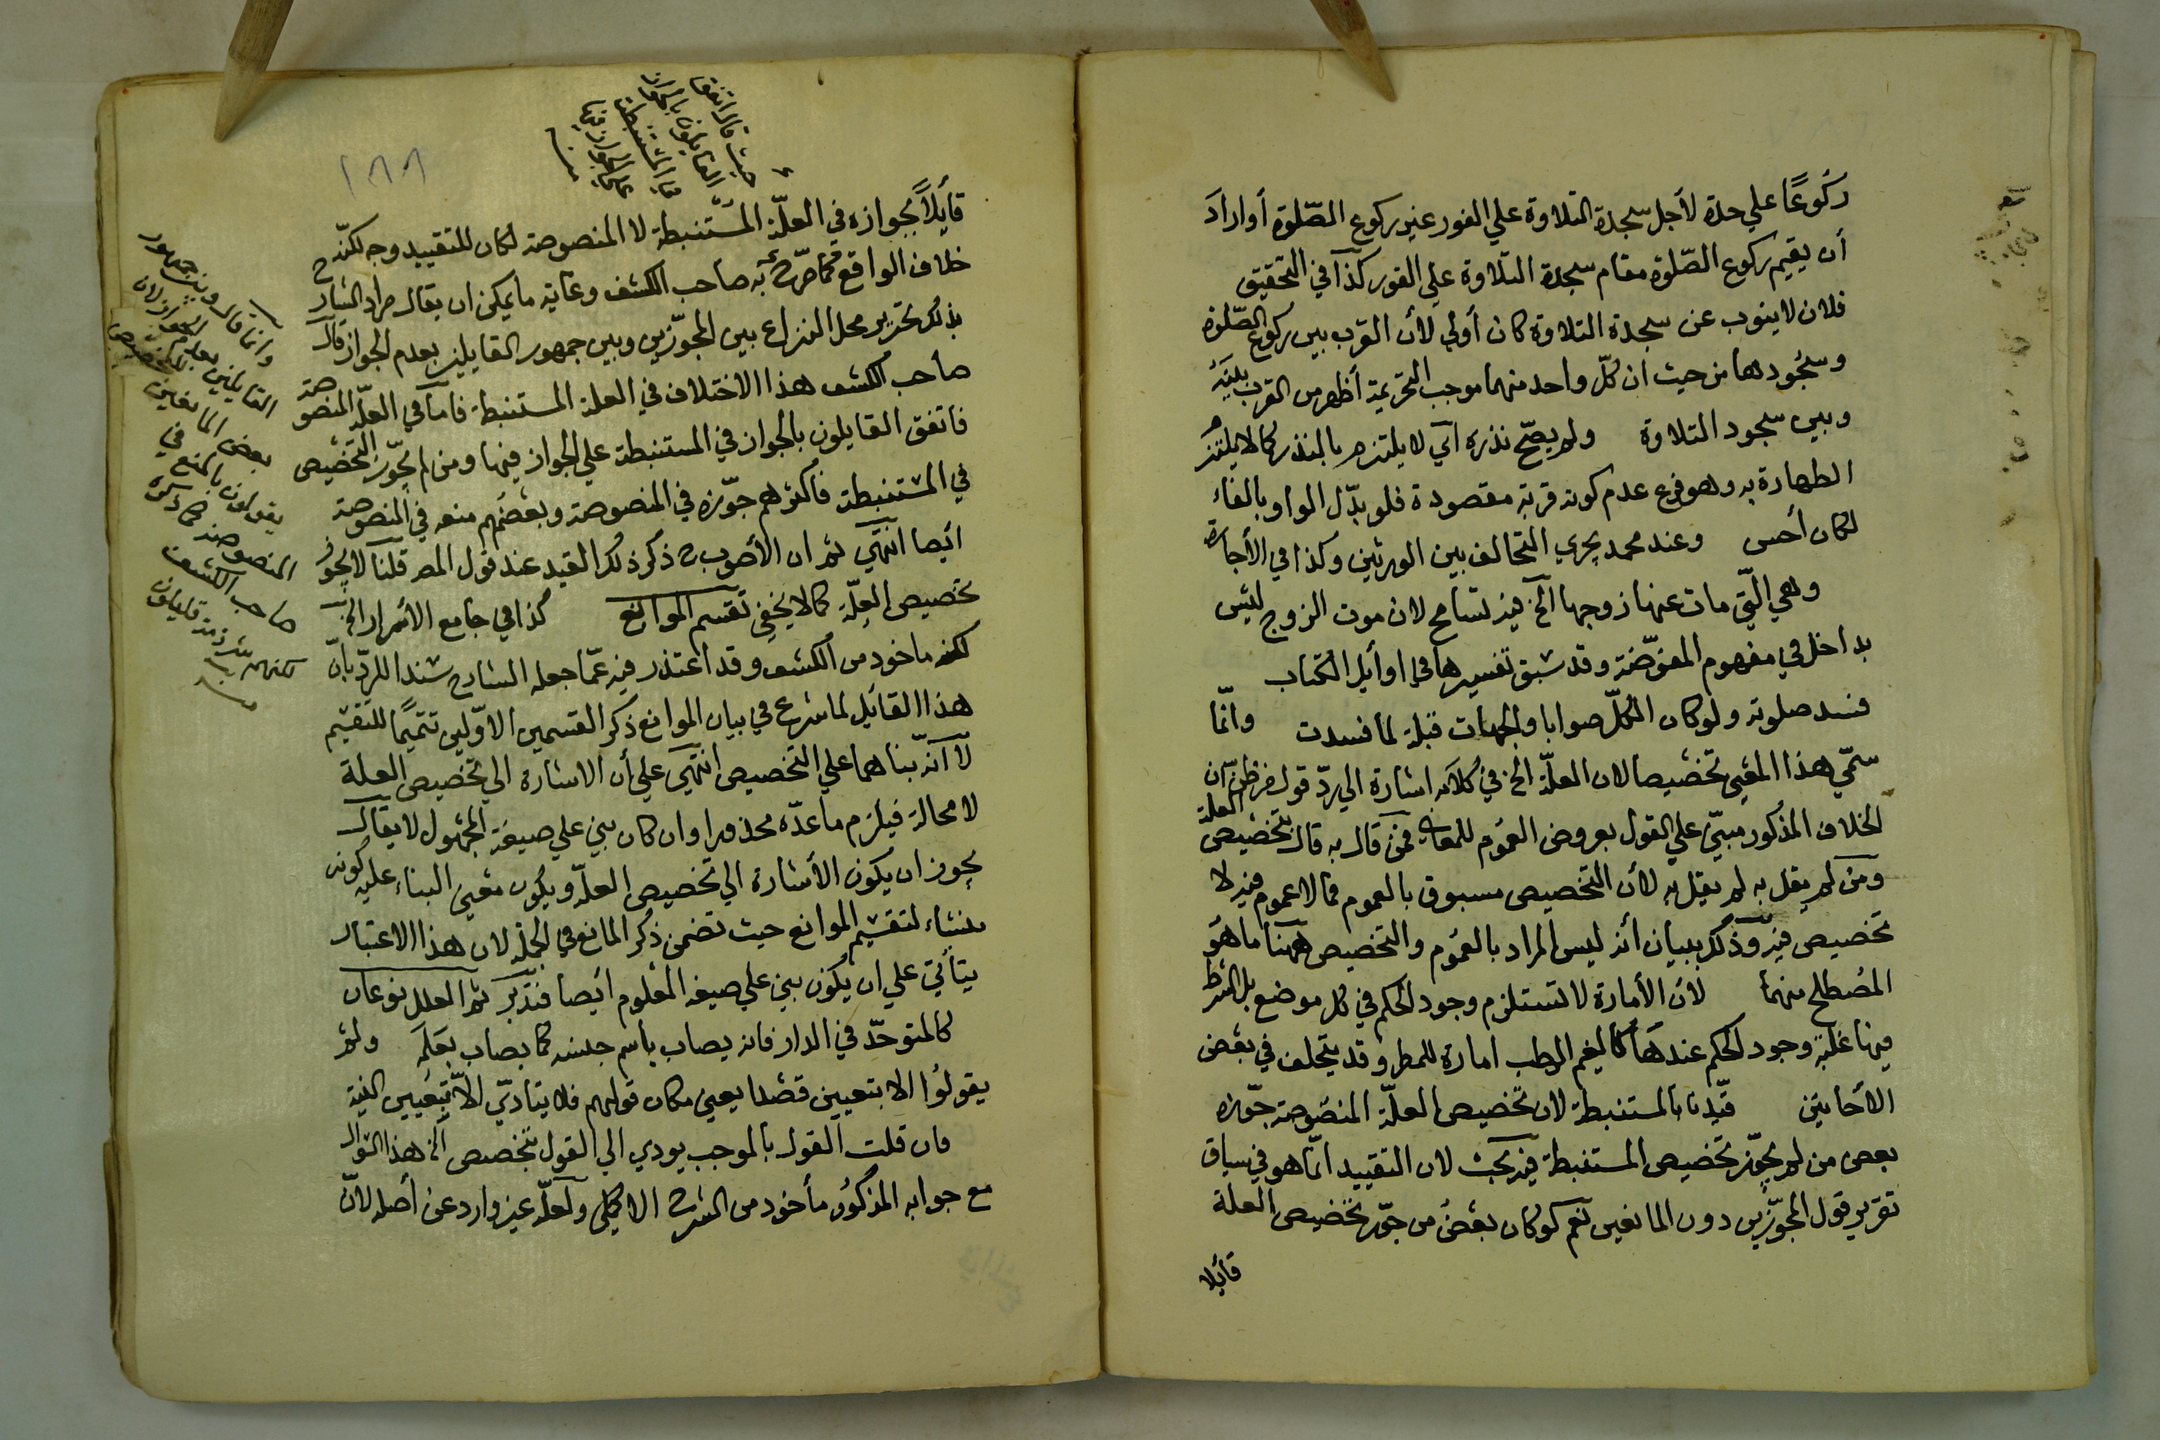 ركوعًا علي حدة لأجل سجدة التلاوة علي الفور غير ركوع الصّلوة أو ارادَ
أن يقيم ركوع الصّلوة مقام سجدة التلاوة علي الفور كذا في التحقيق
فلان لا ينوب عن سجدة التلاوة كان أولي لأن القرب بين ركوع الصّلوة
وسجُودها من حيث ان كلّ واحد منهما موجب التحريمة أظهر من القرب بينَهُ
وبين سجود التلاوة ولم يصحّ نذره اي لا يلتزم بالنذر كما لا يلتزم
الطهارة به وهو فرع عدم كونه قربة مقصودة فلو بدّل الواو بالفاء
لكان أحسن وعند محمد يجري التحالف بين الورثين وكذا في الأجارة
وهي الّتي مات عنها زوجها الخ فيه تسامح لان موت الزوج ليْسَ
بداخل في مفهوم المفوّضة وقد سبق تفسيرها في اوائل الكتاب
فسد صلوته ولو كان الكلّ صوابا والجهات قبلة لما فسدت وانّما
سمّي هذا المعْني تخصيصا لان العلّة الخ في كلامه اشارة الي ردّ قول من ظن أن
الخلاف المذكور مبنيّ علي القول بعروض العمُوم للمعاني فمن قال به قال بتخصيص العلة
ومن لم يقل به لم يقل به لأن التخصيص مسبوق بالعموم فما لا عموم فيه لا
تخصيص فيه وذلك ببيان أنه ليس المراد بالعمُوم والتخصيص ههنا ما هُو
المُصْطلح منهما لأن الأمارة لا تستلزم وجود الحكم في كل موضع بل الشرط
فيها غلبة وجود الحكم عندهَا كالغيم الرطب امارة للمطر وقد يتخلف في بعض
الأحايين قيّدنا بالمستنبطة لان تخصيص العلّة المنصُوصة جوّزه
بعض من لم يجوّز تخصيص المستنبطة فيه بحث لان التقييد انّما هو في سياق
تقرير قول المجوّزين دون المانعين نعم لو كان بعْضُ من جوّز تخصيص العلة
قائلا
١٨٨
قائلاً بجوازه في العلّة المُسْتنبطة لا المنصوصة لكان للتقييد وجه لكنّه
خلاف الواقع ممّا صرّح به صاحب الكشف وغاية ما يمكن ان يقال مراد الشارح
بذلك تحرير محل النزاع بين المجوّزين وبين جمهور القايلين بعدم الجواز قال
صاحب الكشف هذا الاختلاف في العلة المستنبطة فامّا في العلّة المنصوصة
فاتفق القايلون بالجواز في المستنبطة علي الجواز فيها ومن لم يجوّز التخصيص
في المستنبطة فأكثرهم جوّزه في المنصوصة وبعضُهم منعه في المنصوصة
ايضا انتهي ثم ان الأصوب ذكر ذلك القيد عند قول المصـ قلنا لا يجوز
تخصيص العلّة كما لا يخفي تقسم الموانع كذا في جامع الأسرار الخ
لكنه ماخود من الكشف وقد اعتذر فيه عمّا جعله الشارح سندا للردّ بانّ
هذا القائل لما شرع في بيان الموانع ذكر القسمين الاوّلين تتميمًا للتقسيم
لا انّه بناهما علي التخصيص انتهي علي أن الاشارة الي تخصيص العلة
لا محالة فيلزم ما عدّه محذورا وان كان بني علي صيغة المجهول لا يقال
يجوز ان يكون الأشارة الي تخصيص العلّة ويكُون معْني البناء عليه كونه
منشاء لتقسيم الموانع حيث تضمن ذكُر المانع في الجملة لان هذا الاعتبار
يتأتي علي ان يكون بني علي صيغة المعلوم أيضا فتدبّر ثم العلل نوعان
كالمتوحّد في الدار فانه يصاب باسم جنسه كما يصاب بعلَمِه ولم
يقولوُا الا بتعيين قصْدا يعني مكان قولهم فلا يتادّي الاّ بتعيين النية
فان قلت القول بالموجب يودي الي القول بتخصيص الخ هذا السؤال
مع جوابه المذكوُر مأخود من الشرح الاكملي ولعلّه غير وارد عن أصله لانّ
حيث قال اتفق
القايلون بالجواز
في المستنبطة
علي الجواز فيها
منه
وانما قال وبين جمهور
القايلين بعدم الجواز لان
بعض المانعين
يقولون بالمنع في
المنصوصة كما ذكره
صاحب الكشف
لكنهم شرذمة قليلون
منه